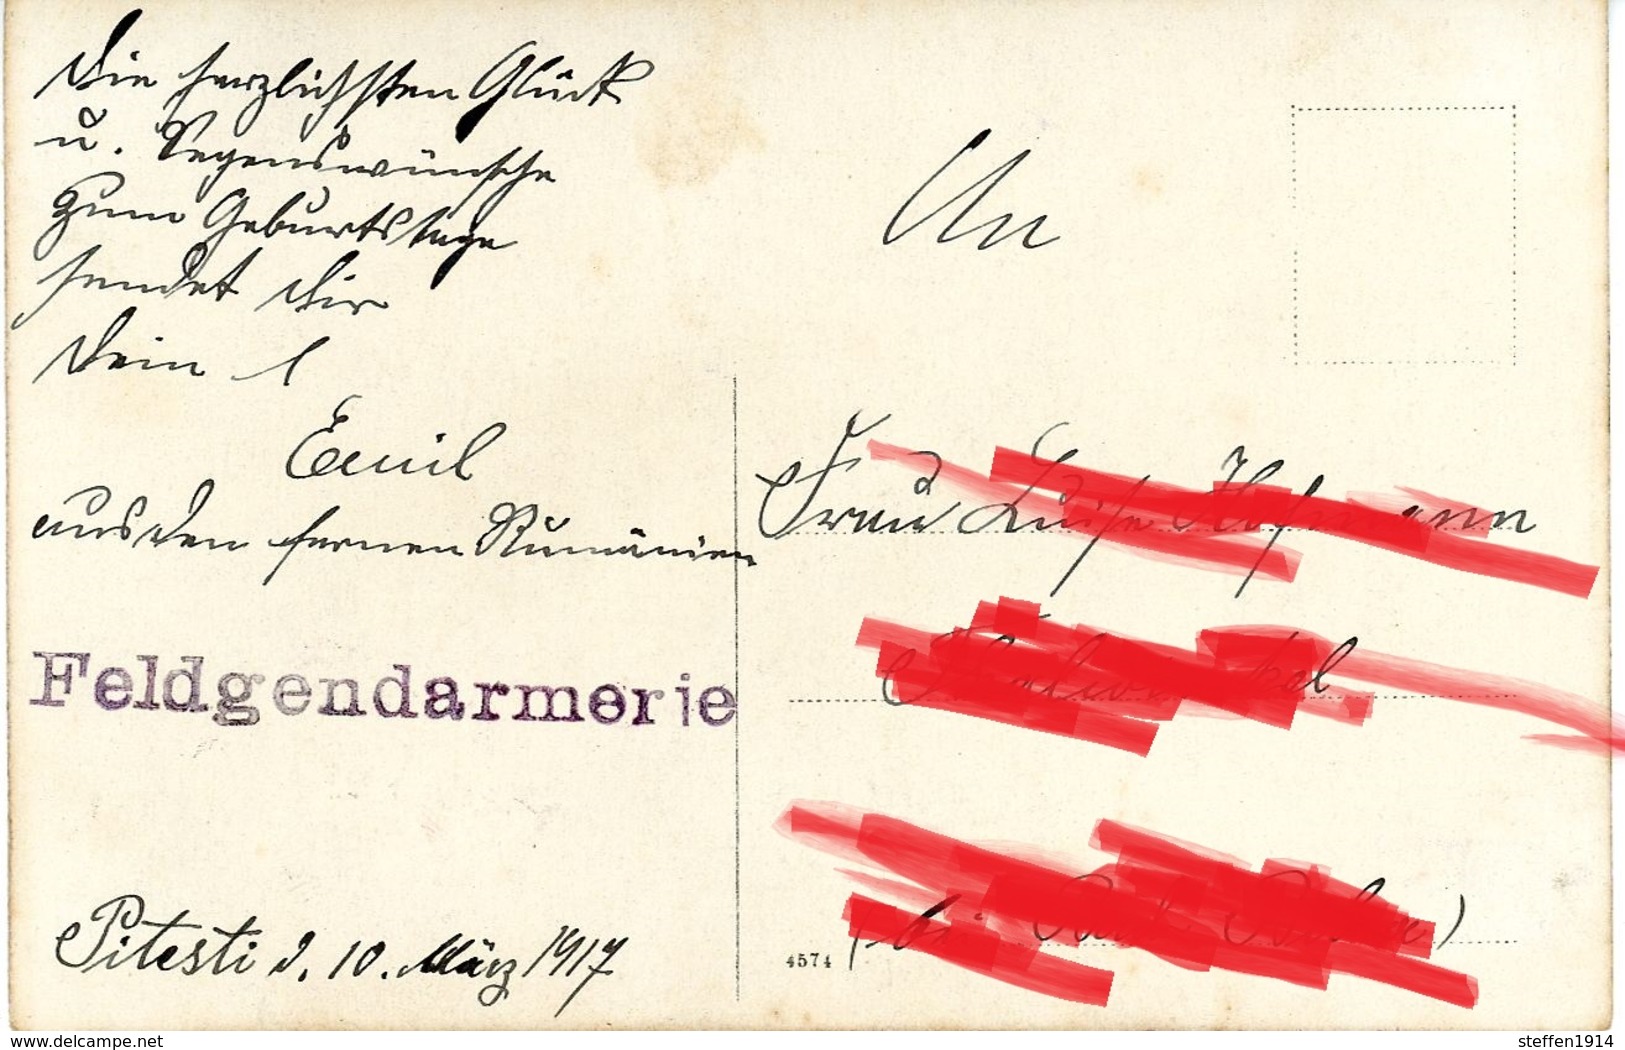 Die herzlichsten Glück
u. Segenswünsche
zum Geburtstage
sendet Dir
Dein l
Emil
aus den fernen Rumänien
Feldgendarmerie
Pitesti d. 10. März 1917
An
Frau Luise
4574
delcampe.net
steffen1914